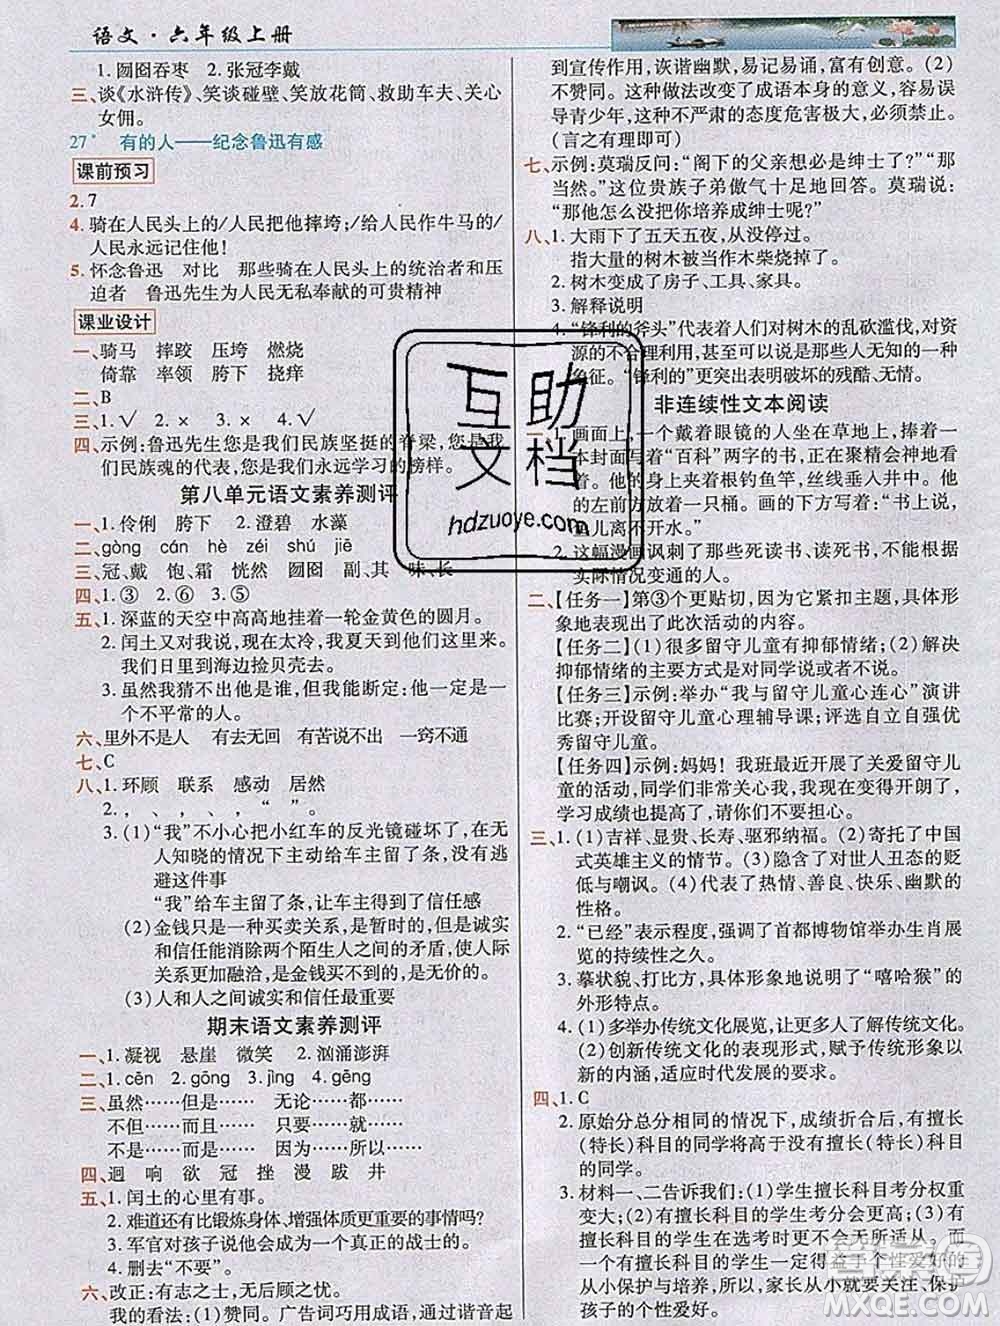 语文·六年级上册
1. 囫囵吞枣　2. 张冠李戴
三、谈《水浒传》、笑谈碰壁、笑放花筒、救助车夫、关心
女佣。
27* 有的人——纪念鲁迅有感
课前预习
2. 7
4. 骑在人民头上的/人民把他摔垮;/给人民作牛马的/
人民永远记住他!
5. 怀念鲁迅　对比　那些骑在人民头上的统治者和压
迫者　鲁迅先生为人民无私奉献的可贵精神
课业设计
一、骑马　摔跤　压垮　燃烧
倚靠　率领　胯下　挠痒
二、B
三、1. √　2. ×　3. ×　4. √
四、示例:鲁迅先生您是我们民族坚挺的脊梁,您是我
们民族魂的代表,您是我们永远学习的榜样。
第八单元语文素养测评
一、1. 伶俐　胯下　2. 澄碧　水藻
二、gòng　cán　hè　zéi　shú　jiē
三、冠、戴　饱、霜　恍然　囫囵　副、其　味、长
四、1. ③　2. ⑥　3. ⑤
五、1. 深蓝的天空中高高地挂着一轮金黄色的圆月。
2. 闰土又对我说,现在太冷,我夏天到他们那里去。
我们日里到海边捡贝壳去。
3. 虽然我猜不出他是谁,但我能断定:他一定是一
个不平常的人。
六、里外不是人　有去无回　有苦说不出　一窍不通
七、C
八、1. 环顾　联系　感动　居然
2. ， 、 ， 、 “ ”。
3. (1)“我”不小心把小红车的反光镜碰坏了,在无
人知晓的情况下主动给车主留了条,没有逃
避这件事
“我”给车主留了条,让车主得到了信任感
(2)金钱只是一种买卖关系,是暂时的,但诚实和
信任能消除两个陌生人之间的矛盾,使人际
关系更加融洽,是金钱买不到的,是无价的。
(3)人和人之间诚实和信任最重要
期末语文素养测评
一、1. 凝视　悬崖　微笑　2. 汹涌澎湃
二、1. cēn　2. gōng　3. jìng　4. gēng
三、虽然……但是……　无论……都……
不但……而且……　只要……就……
不是……而是……　因为……所以……
四、迥　响　欲　冠　挫　漫　跋　井
五、1. 闰土的心里有事。
2. 难道还有比锻炼身体、增强体质更重要的事情吗?
3. 军官对孩子说他会成为一个真正的战士的。
4. 删去“不要”。
六、改正:有志之士,无后顾之忧。
我的看法:(1)赞同。广告词巧用成语,通过谐音起
到宣传作用,诙谐幽默,易记易诵,富有创意。(2)
不赞同。这样的做法改变了成语本身的意义,容易误
导青少年,这种不严肃的态度危害极大,必须禁止。
(言之有理即可)
七、示例:莫瑞反问:“阁下的父亲想必是绅士了?”“那
当然。”这位贵族子弟傲气十足地回答。莫瑞说:
“那他怎么没把你培养成绅士呢?”
八、1. 大雨下了五天五夜,从没停过。
指大量的树木被当作木柴烧掉了。
2. 树木变成了房子、工具、家具。
3. 解释说明
4. “锋利的斧头”代表着人们对树木的乱砍滥伐,对资
源的不合理利用,甚至可以说是那些不法行为的一种
象征。“锋利的”更突出表明破坏的残酷、无情。
非连续性文本阅读
一、1. 画面上,一个戴着眼镜的人坐在草地上,捧着一
本封面写着“百科”两字的书,正在聚精会神地
看。他的身上夹着一根钓鱼竿,丝线垂入井中。他
的左前方放着一只桶。画的下方写着:“书上说,
鱼儿离不开水。”
2. 这幅漫画讽刺了那些死读书、读死书,不根据
实际情况变通的人。
二、【任务一】第③个更贴切,因为它紧扣主题,具体形
象地表现出了此次活动的内容。
【任务二】(1)很多留守儿童有抑郁情绪;(2)解决
抑郁情绪的主要方式是对同学说或者不说。
【任务三】示例:举办“我与留守儿童心连心”演讲
比赛;开设留守儿童心理辅导课;评选自立自强优
秀留守儿童。
【任务四】示例:妈妈!我班最近开展了关爱留守儿童
的活动,同学们非常关心我,我现在变得开朗了,
学习成绩也提高了,请你们不要担心。
三、1. (1)吉祥、显贵、长寿、驱邪纳福。(2)寄托了中国
式英雄主义的情节。(3)隐含了对世人丑态的贬
低与嘲讽。(4)代表了热情、善良、快乐、幽默的
性格。
2. “已经”表明,强调了首都博物馆举办生肖展
览的持续性之久。
3. 摹状貌、打比方,具体形象地说明了“嘻哈猴”的
外形特点。
4. (1)多举办传统文化展览,让更多人了解传统文化。
(2)创新传统文化的表现形式,赋予传统形象以
新的内涵,适应时代发展。
四、1. C
2. 原始分总分相同的情况下,成绩折合后,有擅长
(特长)科目的同学将高于没有擅长(特长)科目
的同学。
3. 材料一、二告诉我们:(1)学生擅长科目分权重
变大;(2)有擅长科目的学生考分会更高;(3)没
有擅长科目的学生一定得重视个性爱好的
从小保护与培养,所以,家长从小就要关注、保护
孩子的个性爱好。
互助
文档
hdzuoye.com
MXQE.COM